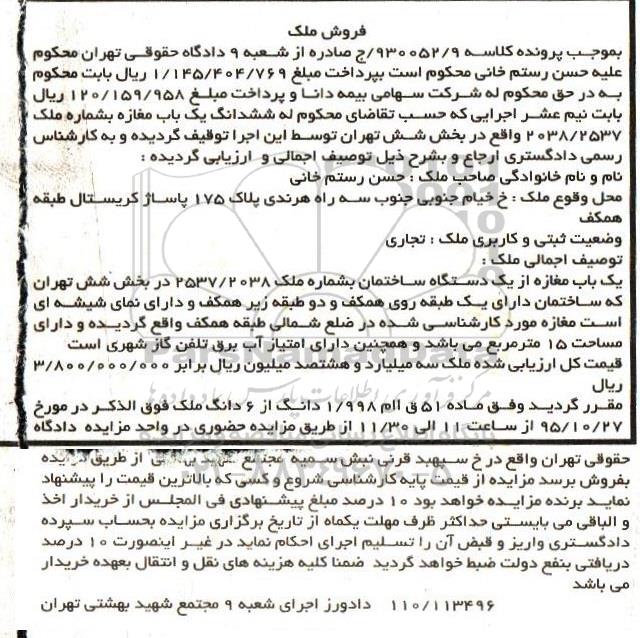 فروش ملک
بموجب پرونده کلاسه ۹۳۰۰۵۲/۹/ج صادره از شعبه ۹ دادگاه حقوقی تهران محکوم
علیه حسن رستم خانی محکوم است بپرداخت مبلغ ۱/۱۴۵/۴۰۴/۷۶۹ ریال بابت محکوم
به در حق محکوم له شرکت سهامی بیمه دانا و پرداخت مبلغ ۱۲۰/۱۵۹/۹۵۸ ریال
بابت نیم عشر اجرایی که حسب تقاضای محکوم له ششدانگ یک باب مغازه بشماره ملک
۲۰۳۸/۲۵۳۷ واقع در بخش شش تهران توسط این اجرا توقیف گردیده و به کارشناس
رسمی دادگستری ارجاع و بشرح ذیل توصیف اجمالی و ارزیابی گردیده :
نام و نام خانوادگی صاحب ملک : حسن رستم خانی
محل وقوع ملک : خ خیام جنوبی جنوب سه راه هرندی پلاک ۱۷۵ پاساژ کریستال طبقه
همکف
وضعیت ثبتی و کاربری ملک : تجاری
توصیف اجمالی ملک :
یک باب مغازه از یک دستگاه ساختمان بشماره ملک ۲۵۳۷/۲۰۳۸ در بخش شش تهران
که ساختمان دارای یک طبقه روی همکف و دو طبقه زیر همکف و دارای نمای شیشه ای
است مغازه مورد کارشناسی شده در ضلع شمالی طبقه همکف واقع گردیده و دارای
مساحت ۱۵ مترمربع می باشد و همچنین دارای امتیاز آب برق تلفن گاز شهری است
قیمت کل ارزیابی شده ملک سه میلیارد و هشتصد میلیون ریال برابر ۳/۸۰۰/۰۰۰/۰۰۰
ریال
مقرر گردید وفق ماده ۵۱ ق اام ۱/۹۹۸ دانگ از ۶ دانگ ملک فوق الذکر در مورخ
۹۵/۱۰/۲۷ از ساعت ۱۱ الی ۱۱/۳۰ از طریق مزایده حضوری در واحد مزایده دادگاه
حقوقی تهران واقع در خ سپهبد قرنی نبش سمیه مجتمع شهید بهشتی از طریق مزایده
بفروش برسد مزایده از قیمت پایه کارشناسی شروع و کسی که بالاترین قیمت را پیشنهاد
نماید برنده مزایده خواهد بود ۱۰ درصد مبلغ پیشنهادی فی المجلس از خریدار اخذ
و الباقی می بایستی حداکثر ظرف مهلت یکماه از تاریخ برگزاری مزایده بحساب سپرده
دادگستری واریز و قبض آن را تسلیم اجرای احکام نماید در غیر اینصورت ۱۰ درصد
دریافتی بنفع دولت ضبط خواهد گردید ضمنا کلیه هزینه های نقل و انتقال بعهده خریدار
می باشد
۱۱۰/۱۱۳۴۹۶ دادورز اجرای شعبه ۹ مجتمع شهید بهشتی تهران
ParsNamadData